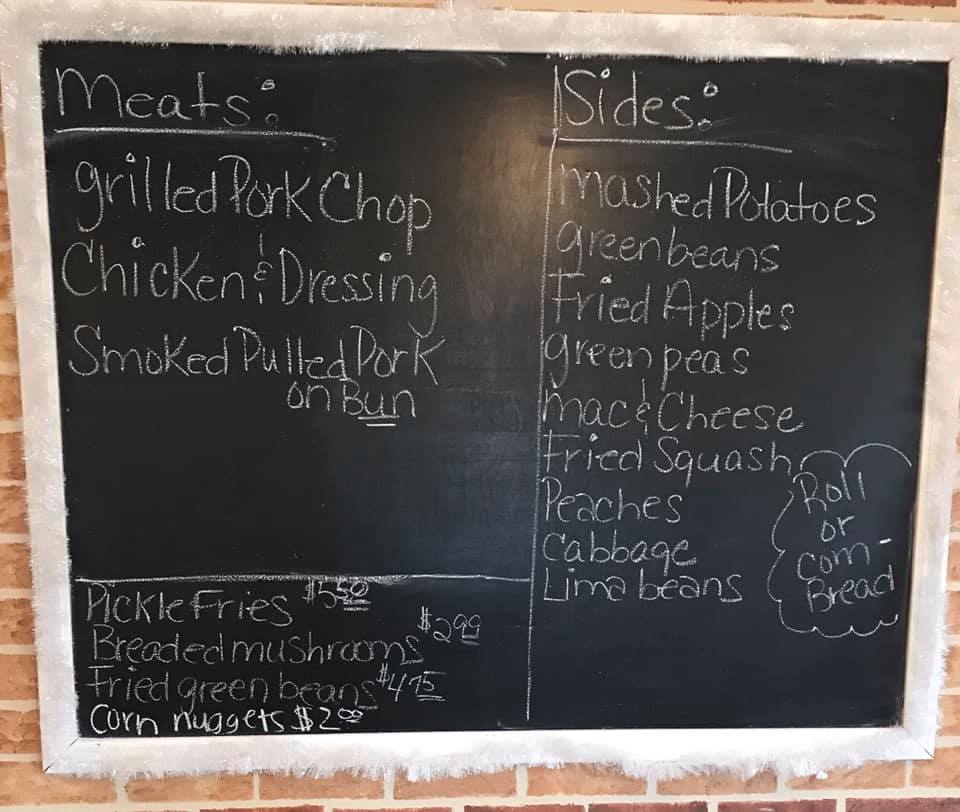 Meats:
grilled Pork Chop
Chicken & Dressing
Smoked Pulled Pork
on Bun
Pickle Fries $5.50
Breaded mushrooms $2.99
Fried green beans $4.75
Corn nuggets $2.00
Sides:
mashed Potatoes
green beans
Fried Apples
green peas
mac & Cheese
Fried Squash
Peaches
Cabbage
Lima beans
Roll
or
corn-
Bread